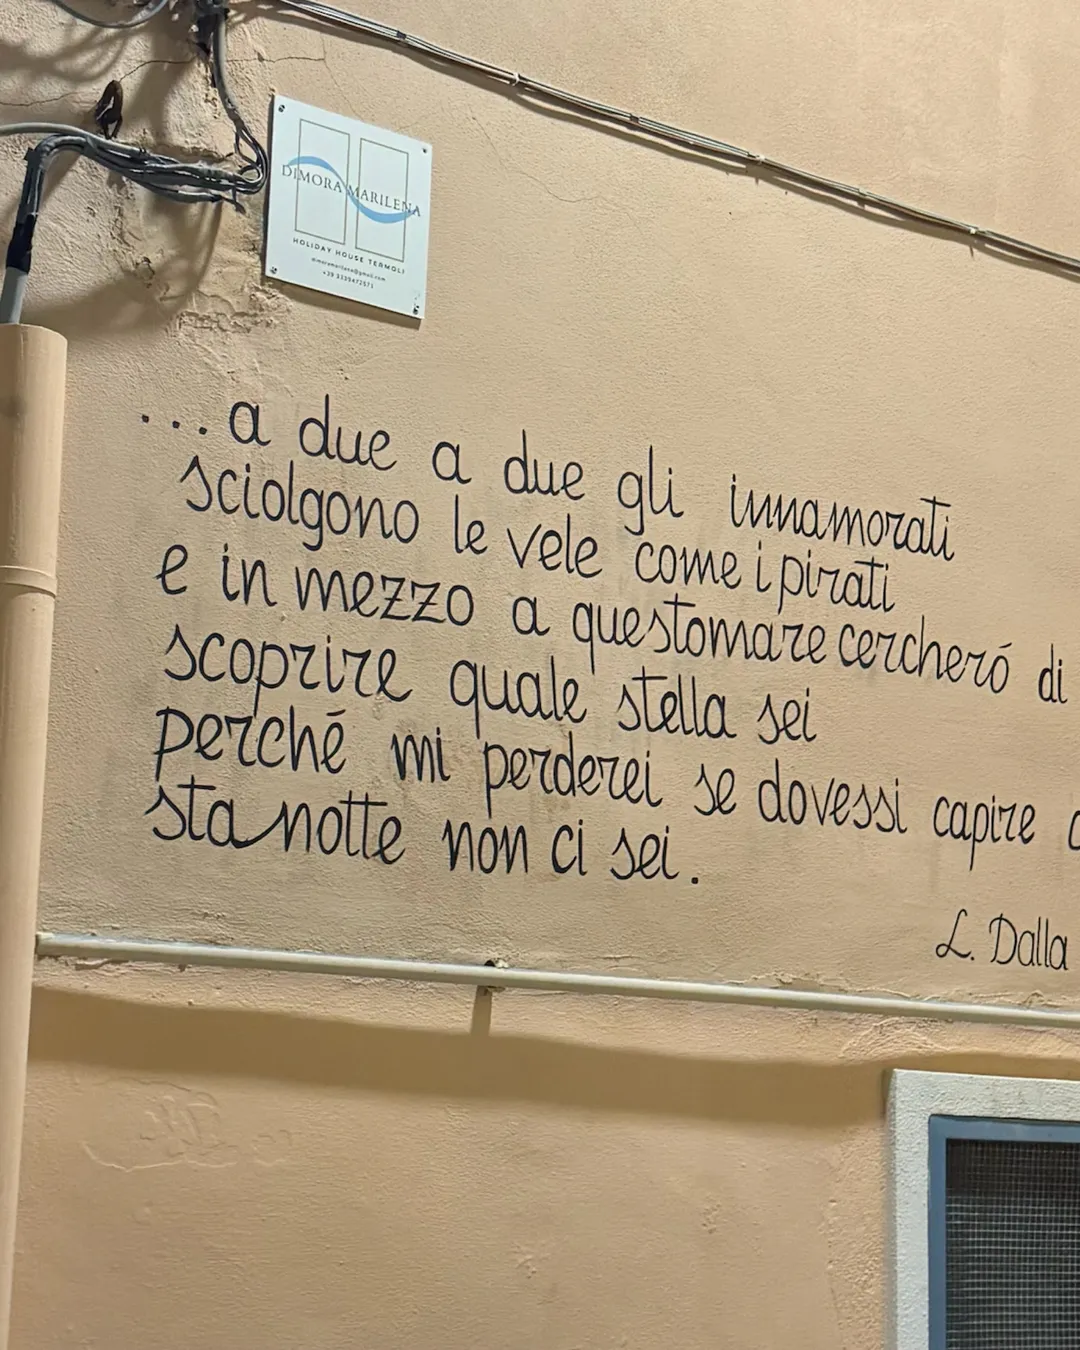 DIMORA MARILENA
HOLIDAY HOUSE TERMOLI
dimoramarilena@gmail.com
+39 3339472571
...a due a due gli innamorati
sciolgono le vele come i pirati
e in mezzo a questo mare cercheró di
scoprire quale stella sei
perché mi perderei se dovessi capire
sta notte non ci sei.
L. Dalla